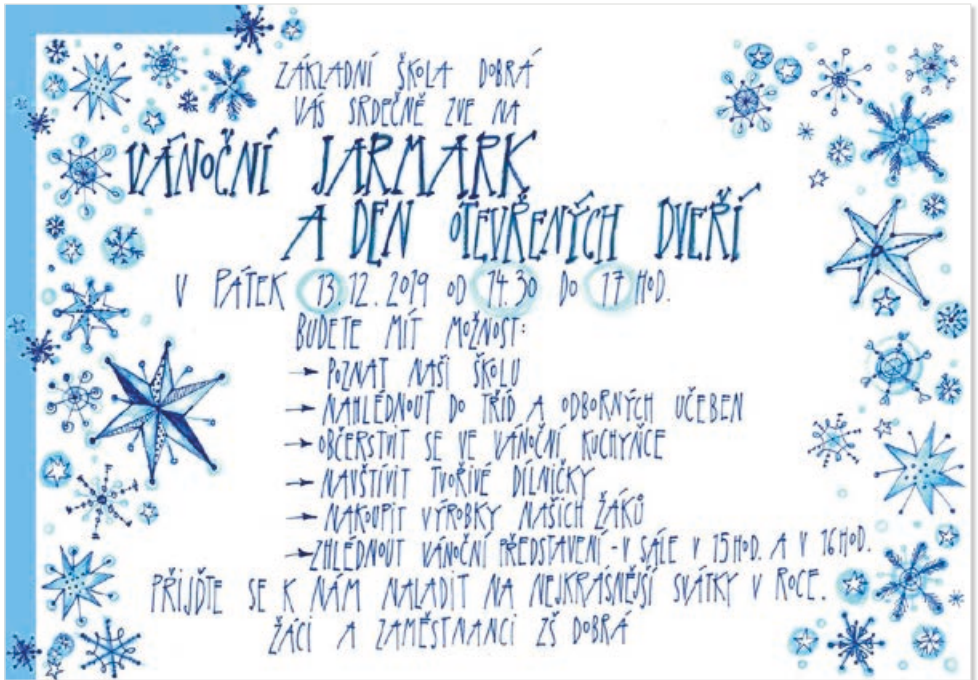 ZÁKLADNÍ ŠKOLA DOBRÁ
VÁS SRDEČNĚ ZVE NA
VÁNOČNÍ JARMARK
A DEN OTEVŘENÝCH DVEŘÍ
V PÁTEK 13.12.2019 OD 14.30 DO 17 HOD.
BUDETE MÍT MOŽNOST:
→ POZNAT NAŠÍ ŠKOLU
→ NAHLÉDNOUT DO TŘÍD A ODBORNÝCH UČEBEN
→ OBČERSTVIT SE VE VÁNOČNÍ KUCHYŇCE
→ NAVŠTÍVIT TVOŘIVÉ DÍLNIČKY
→ NAKOUPIT VÝROBKY NAŠICH ŽÁKŮ
→ ZHLÉDNOUT VÁNOČNÍ PŘEDSTAVENÍ - V SÁLE V 15 HOD. A V 16 HOD.
PŘIJĎTE SE K NÁM NALADIT NA NEJKRÁSNĚJŠÍ SVÁTKY V ROCE.
ŽÁCI A ZAMĚSTNANCI ZŠ DOBRÁ